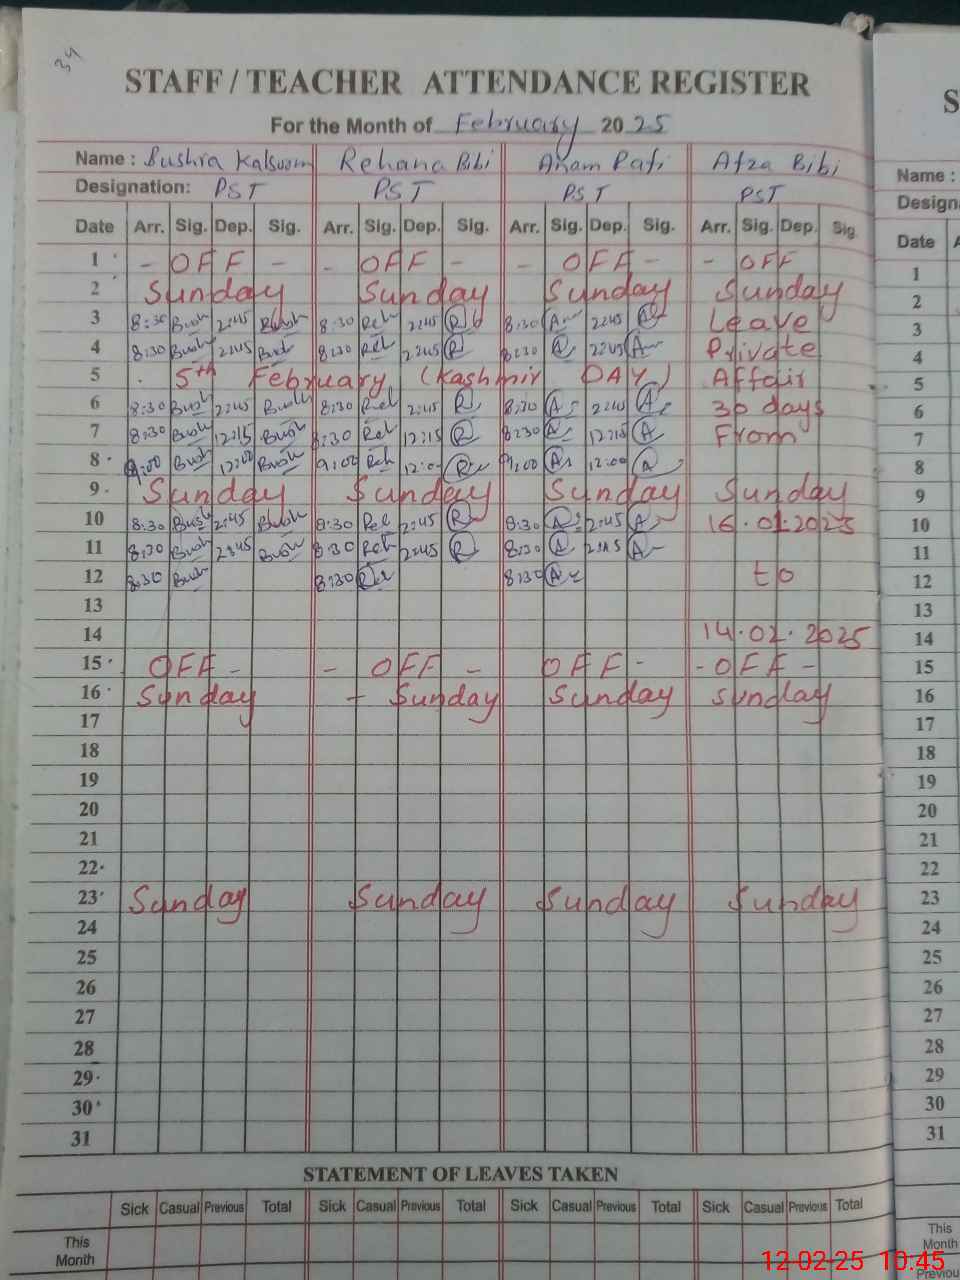 34
STAFF / TEACHER ATTENDANCE REGISTER
S
For the Month of February 2025
Name : Bushra Kalsoom Rehana Bibi Anam Rafi Afza Bibi
Name :
Designation: PST PST PST PST
Design
Date Arr. Sig. Dep. Sig. Arr. Sig. Dep. Sig. Arr. Sig. Dep. Sig. Arr. Sig. Dep. Sig.
Date A
1 - OFF - - OFF - - OFF - - OFF
1
2 Sunday Sunday Sunday Sunday
2
3 8:30 Bush 2:45 Bush 8:30 Reh 2:45 R 8:30 A 2:45 A Leave
3
4 8:30 Bush 2:45 Bush 8:30 Reh 2:45 R 8:30 A 2:45 A Private
4
5 5th February (Kashmir DAY) Affair
5
6 8:30 Bush 2:45 Bush 8:30 Reh 2:45 R 8:30 A 2:45 A 30 days
6
7 8:30 Bush 12:15 Bush 8:30 Reh 12:15 R 8:30 A 12:15 A From
7
8 9:00 Bush 12:00 Bush 9:00 Reh 12:00 R 9:00 A 12:00 A
8
9 Sunday Sunday Sunday Sunday
9
10 8:30 Bush 2:45 Bush 8:30 Reh 2:45 R 8:30 A 2:45 A 16.01.2025
10
11 8:30 Bush 2:45 Bush 8:30 Reh 2:45 R 8:30 A 2:45 A
11
12 8:30 Bush 8:30 R 8:30 A to
12
13
13
14 14.02.2025
14
15 OFF - - OFF - OFF - - OFF -
15
16 Sunday - Sunday Sunday Sunday
16
17
17
18
18
19
19
20
20
21
21
22
22
23 Sunday Sunday Sunday Sunday
23
24
24
25
25
26
26
27
27
28
28
29
29
30
30
31
31
STATEMENT OF LEAVES TAKEN
Sick Casual Previous Total Sick Casual Previous Total Sick Casual Previous Total Sick Casual Previous Total
This Month
This Month
Previou
12-02-25 10:45